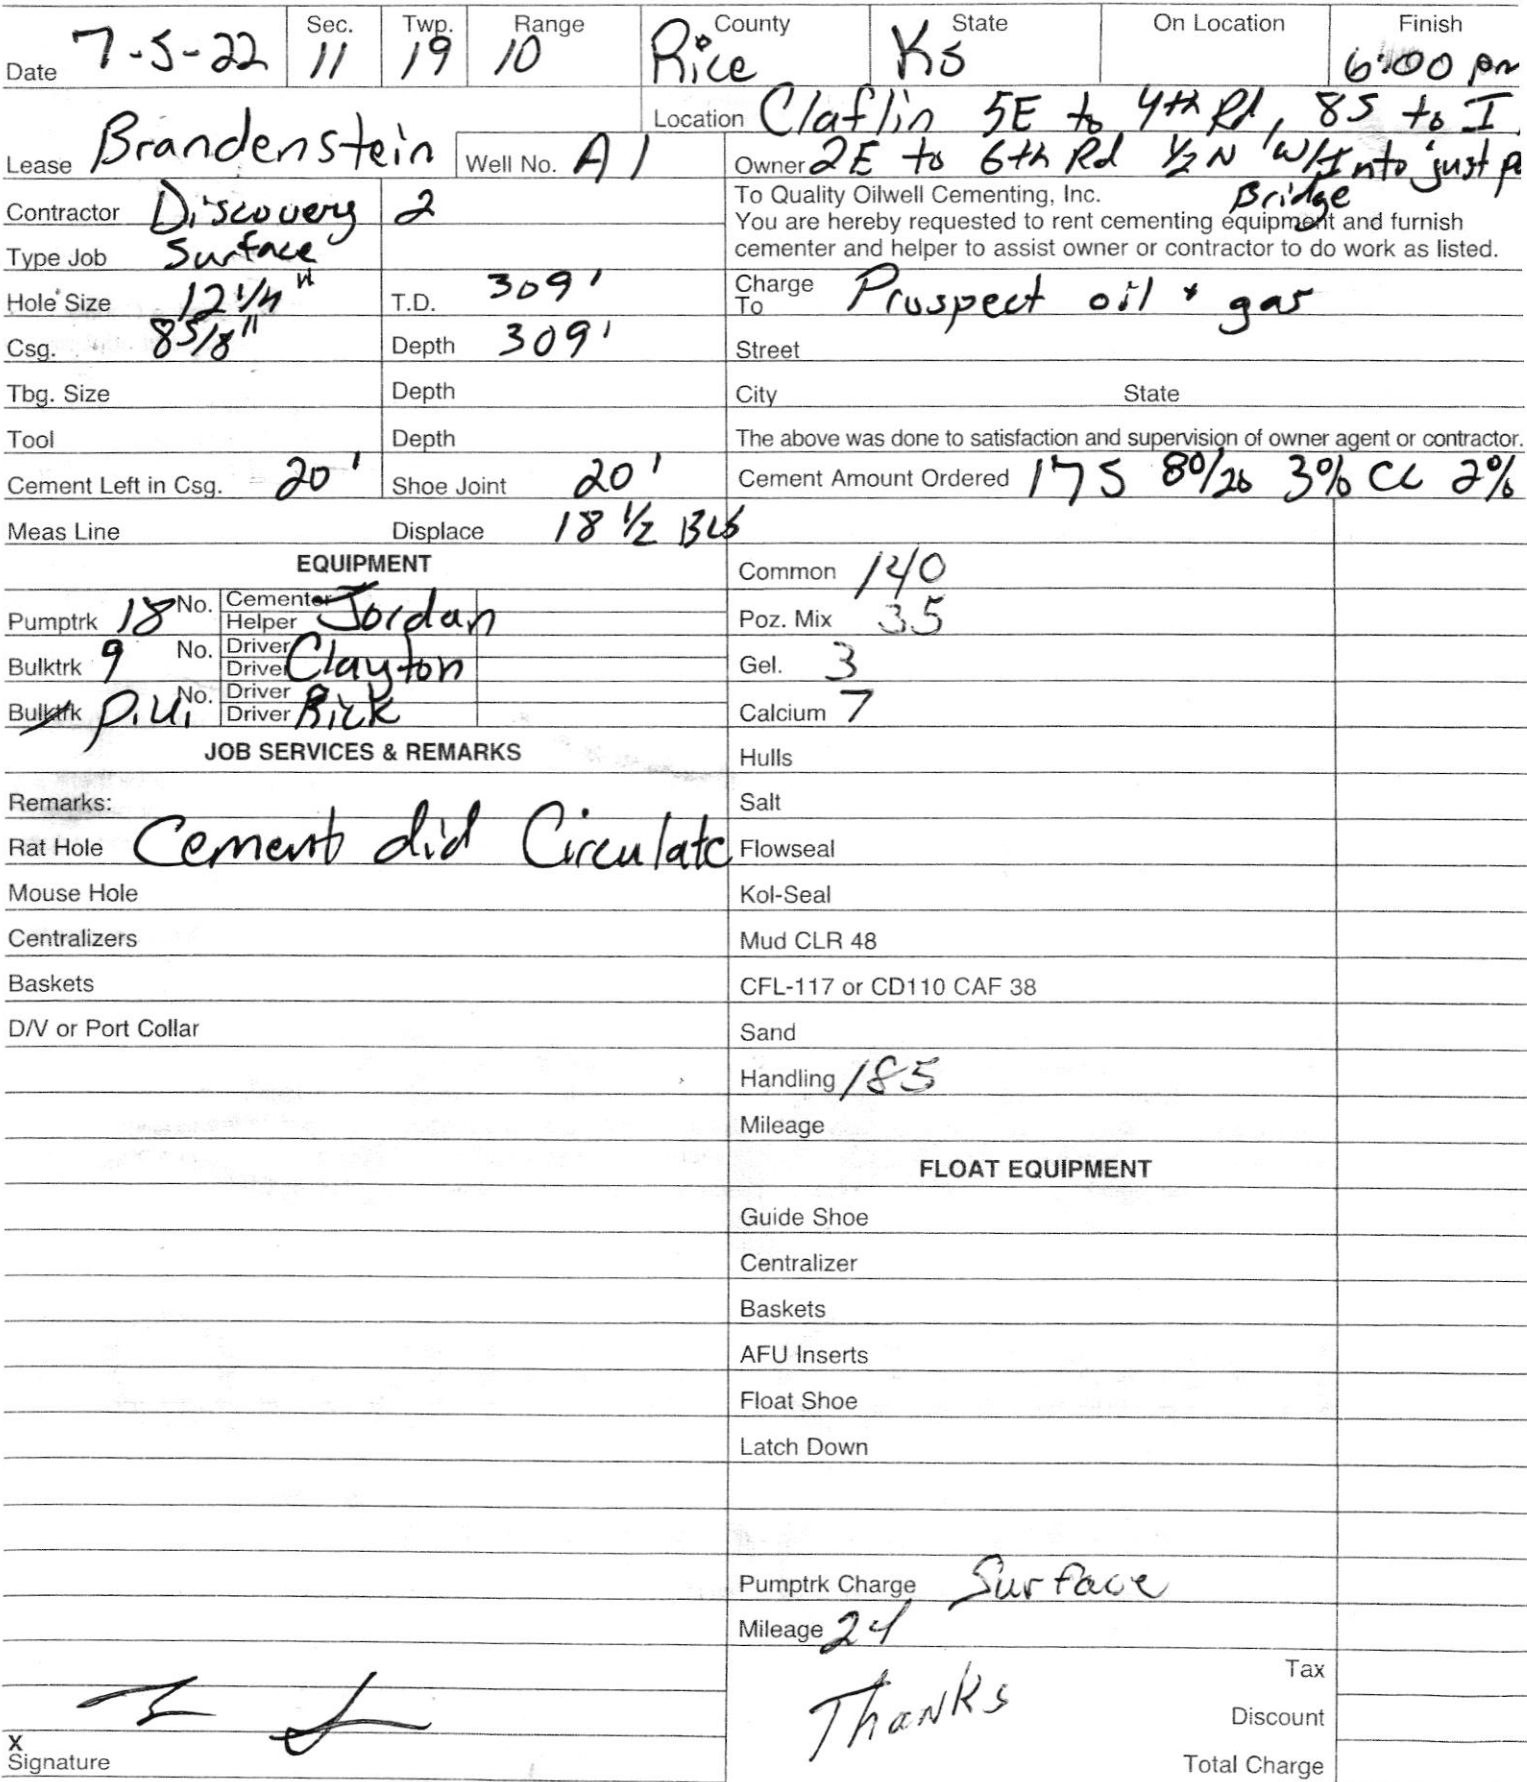 Date 7-5-22 Sec. 11 Twp. 19 Range 10 County Rice State Ks On Location Finish 6:00 pm
Lease Brandenstein Well No. A 1 Location Claflin 5E to 4th Rd, 8S to I
Owner 2E to 6th Rd 1/2 N W/Into just
Bridge
Contractor Discovery 2 To Quality Oilwell Cementing, Inc.
You are hereby requested to rent cementing equipment and furnish
cementer and helper to assist owner or contractor to do work as listed.
Type Job Surface
Hole Size 12 1/4" T.D. 309' Charge To Prospect oil + gas
Csg. 8 5/8" Depth 309' Street
Tbg. Size Depth City State
Tool Depth The above was done to satisfaction and supervision of owner agent or contractor.
Cement Left in Csg. 20' Shoe Joint 20' Cement Amount Ordered 175 80/20 3% CC 2%
Meas Line Displace 18 1/2 BLS
EQUIPMENT Common 140
Pumptrk 18 No. Cementer Helper Jordan Poz. Mix 35
Bulktrk 9 No. Driver Driver Clayton Gel. 3
Bulktrk P.U. No. Driver Driver Rick Calcium 7
JOB SERVICES & REMARKS Hulls
Remarks: Salt
Rat Hole Cement did Circulate Flowseal
Mouse Hole Kol-Seal
Centralizers Mud CLR 48
Baskets CFL-117 or CD110 CAF 38
D/V or Port Collar Sand
Handling 185
Mileage
FLOAT EQUIPMENT
Guide Shoe
Centralizer
Baskets
AFU Inserts
Float Shoe
Latch Down
Pumptrk Charge Surface
Mileage 24
Tax
Thanks Discount
X
Signature Total Charge